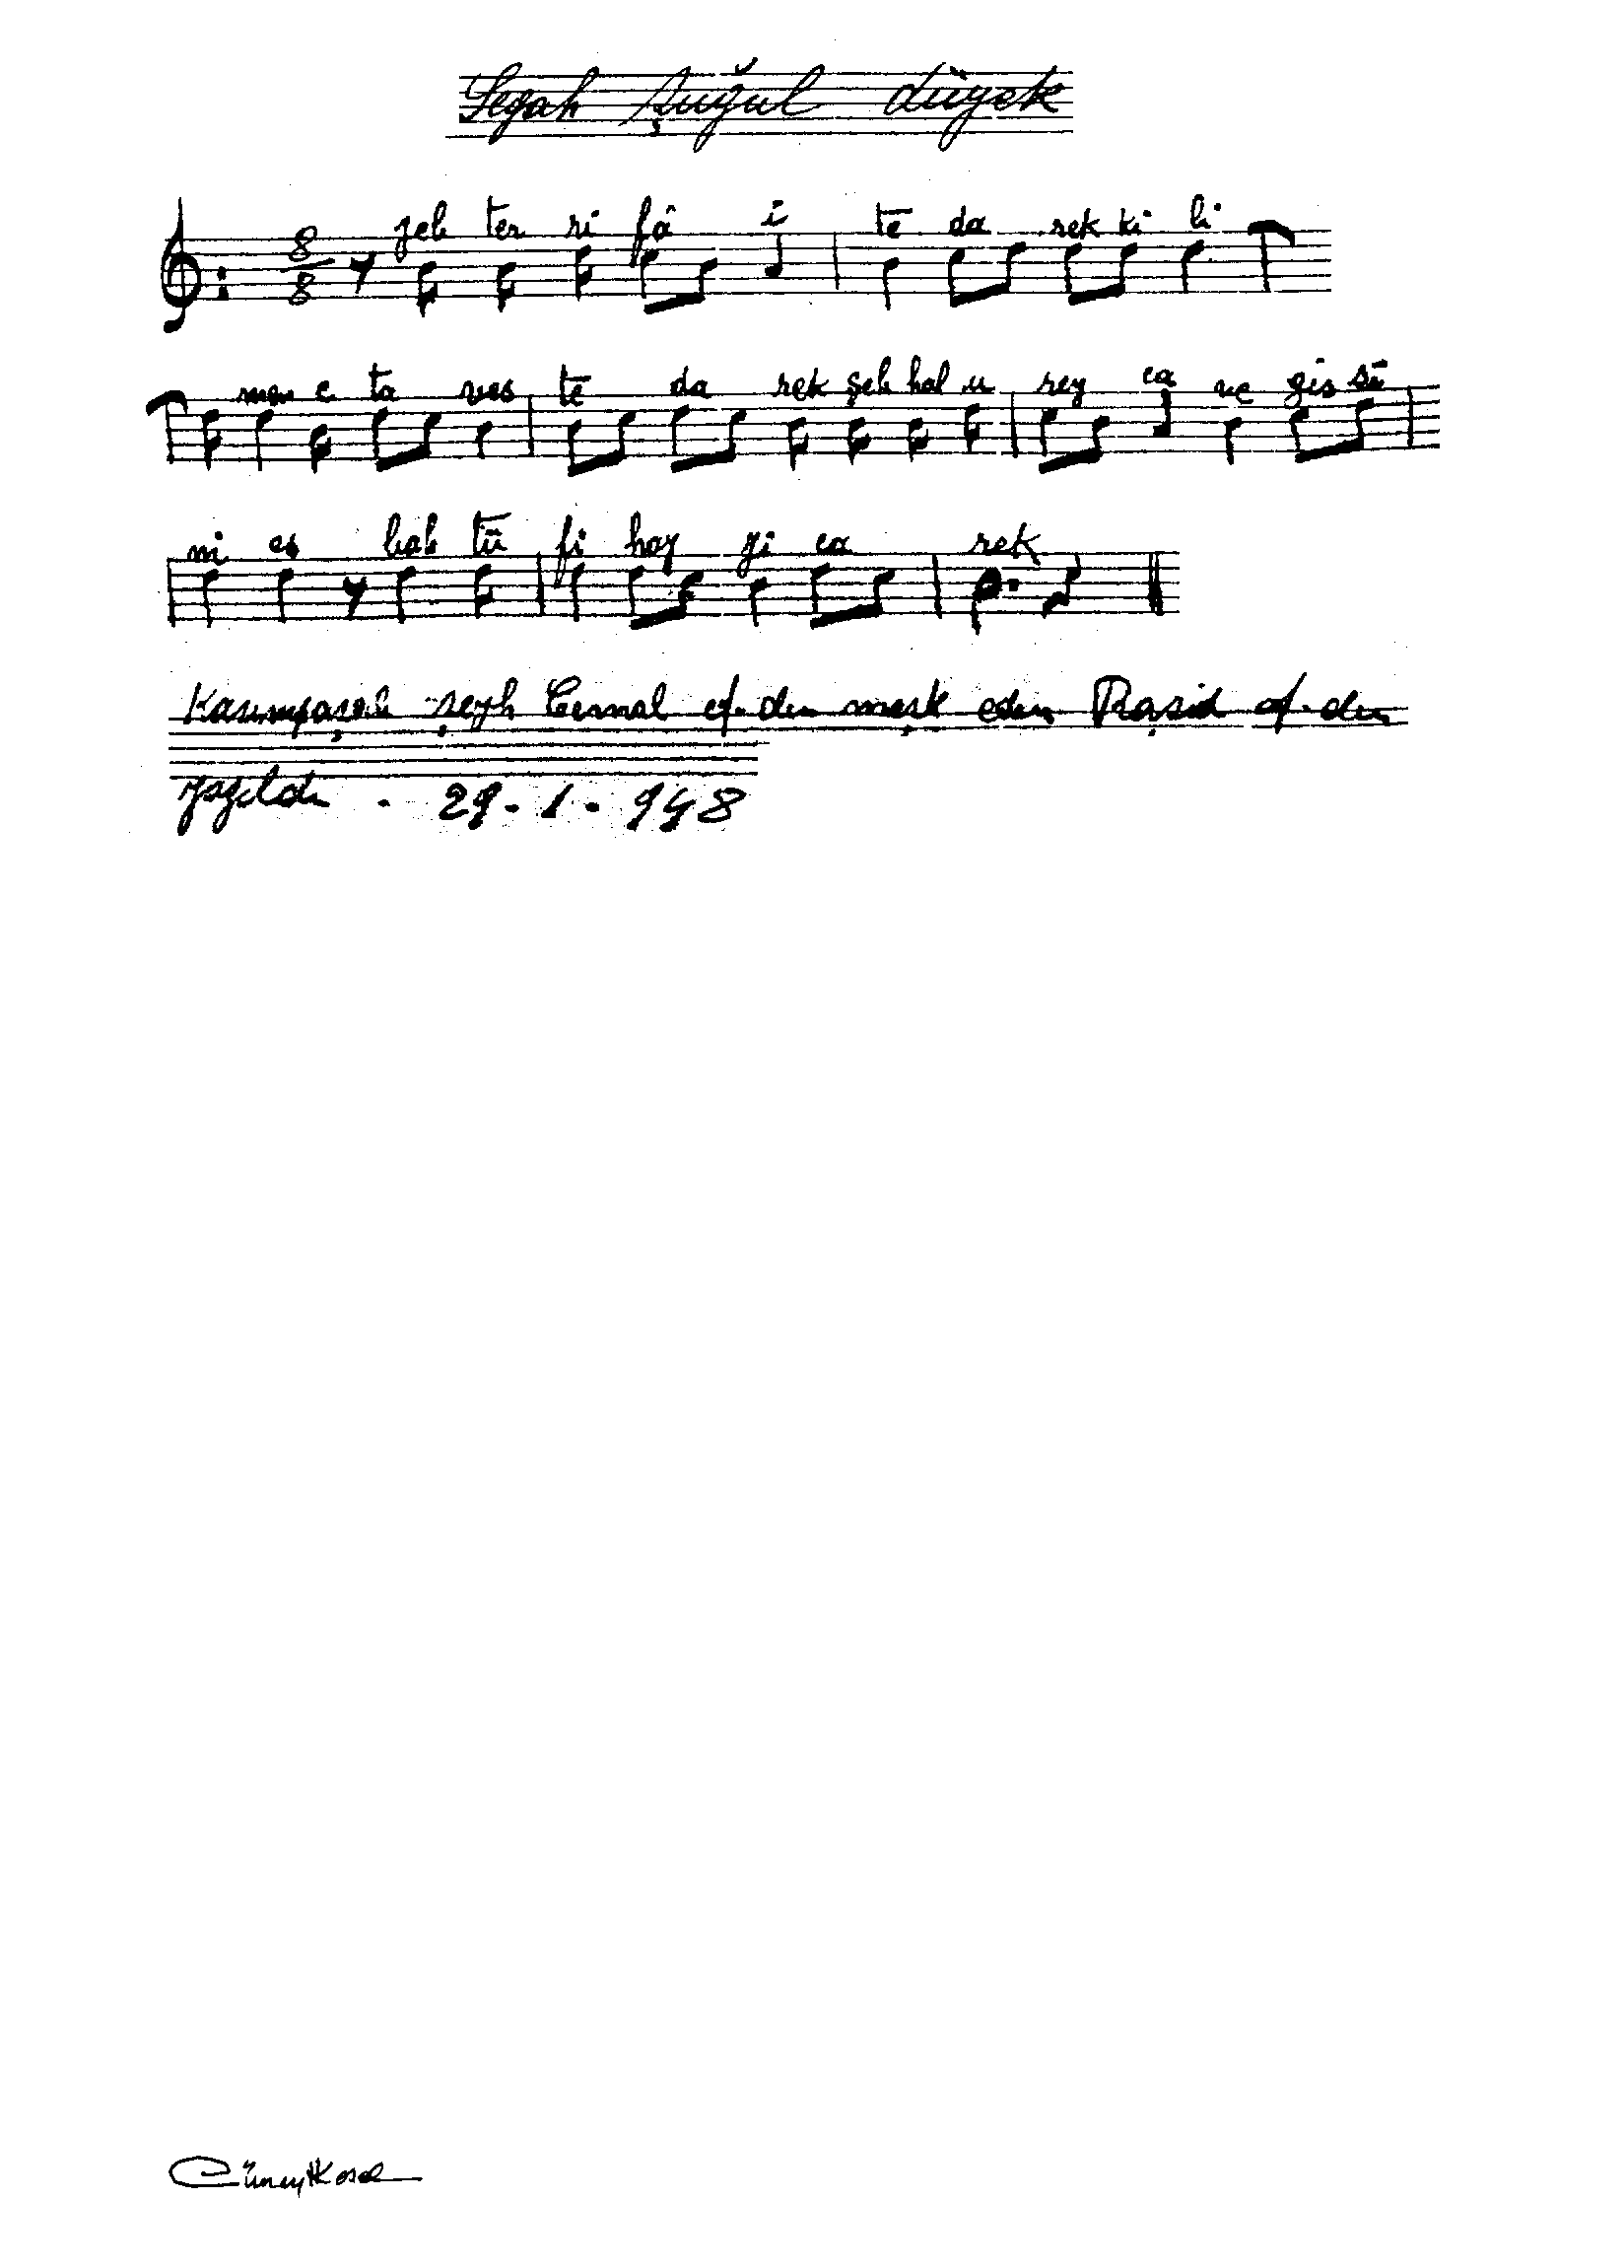 Segah Şuğul düyek
8
8
jeb ter ri fâ i tē da rek ki li
men e ta ves tē da rek şeb hal u rey ca ve gis sū
ni es bab tū fi hay yi ca rek
Kasımpaşalı şeyh Cemal ef. den meşk eden Raşid ef. den
yazıldı . 29 . 1 . 948
Cüneyt Kosal